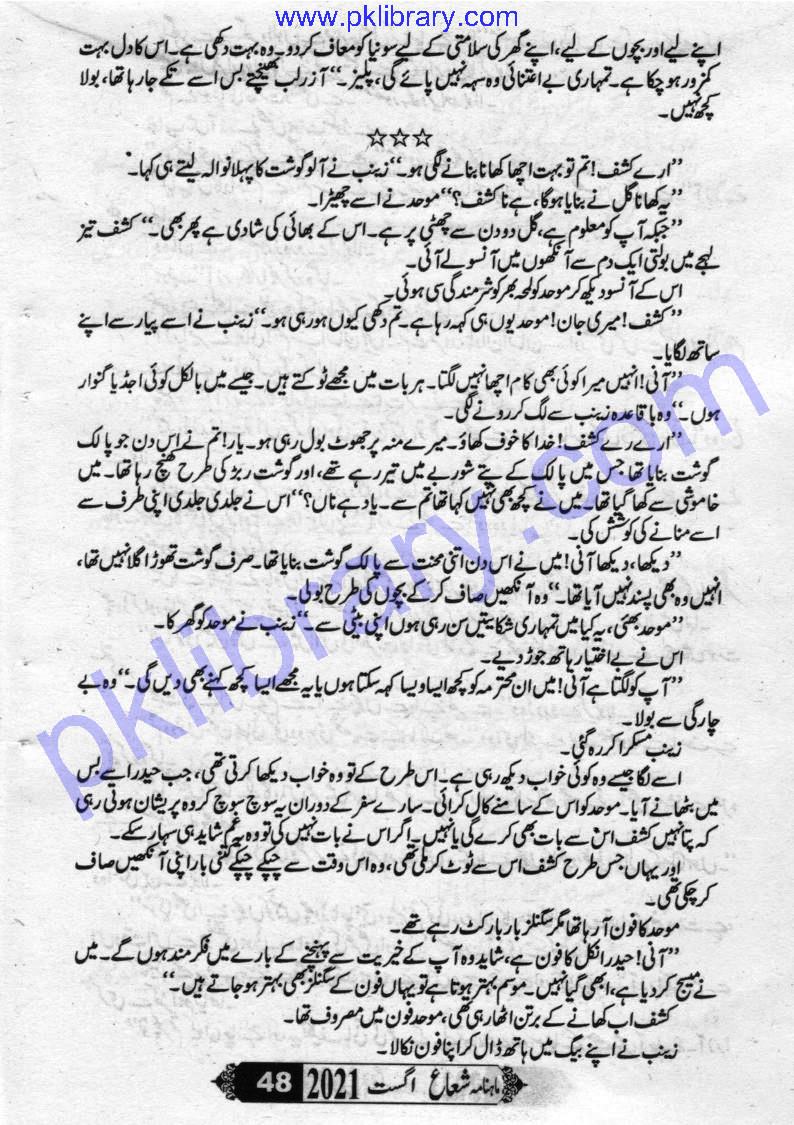 www.pklibrary.com
اپنے لیے اور بچوں کے لیے، اپنے گھر کی سلامتی کے لیے سونیا کو معاف کر دو۔ وہ بہت دکھی ہے۔ اس کا دل بہت
کمزور ہو چکا ہے۔ تمہاری بے اعتنائی وہ سہہ نہیں پائے گی، پلیز۔“ آزر لب بھینچتے بس اسے تکے جا رہا تھا، بولا
کچھ نہیں۔
☆☆☆
”ارے کشف! تم تو بہت اچھا کھانا بنانے لگی ہو۔“ زینب نے آلو گوشت کا پہلا نوالہ لیتے ہی کہا۔
”یہ کھانا گل نے بنایا ہو گا، ہے نا کشف؟“ موحد نے اسے چھیڑا۔
”جبکہ آپ کو معلوم ہے، گل دو دن سے چھٹی پر ہے۔ اس کے بھائی کی شادی ہے پھر بھی۔“ کشف تیز
لہجے میں بولتی ایک دم سے آنکھوں میں آنسو لے آئی۔
اس کے آنسو دیکھ کر موحد کو لمحہ بھر کو شرمندگی سی ہوئی۔
”کشف! میری جان! موحد یوں ہی کہہ رہا ہے۔ تم دکھی کیوں ہو رہی ہو۔“ زینب نے اسے پیار سے اپنے
ساتھ لگایا۔
”آنی! انہیں میرا کوئی بھی کام اچھا نہیں لگتا۔ ہر بات میں مجھے ٹوکتے ہیں۔ جیسے میں بالکل کوئی اجڈ یا گنوار
ہوں۔“ وہ باقاعدہ زینب سے لگ کر رونے لگی۔
”ارے رے کشف! خدا کا خوف کھاؤ۔ میرے منہ پر جھوٹ بول رہی ہو۔ یار! تم نے اس دن جو پالک
گوشت بنایا تھا جس میں پالک کے پتے شوربے میں تیر رہے تھے، اور گوشت ربڑ کی طرح کھنچ رہا تھا۔ میں
خاموشی سے کھا گیا تھا۔ میں نے کچھ بھی نہیں کہا تھا تم سے۔ یاد ہے ناں؟“ اس نے جلدی جلدی اپنی طرف سے
اسے منانے کی کوشش کی۔
”دیکھا، دیکھا آنی! میں نے اس دن اتنی محنت سے پالک گوشت بنایا تھا۔ صرف گوشت تھوڑا گلا نہیں تھا،
انہیں وہ بھی پسند نہیں آیا تھا۔“ وہ آنکھیں صاف کر کے بچوں کی طرح بولی۔
”موحد بھئی، یہ کیا میں تمہاری شکایتیں سن رہی ہوں اپنی بیٹی سے۔“ زینب نے موحد کو گھرکا۔
اس نے بے اختیار ہاتھ جوڑ دیے۔
”آپ کو لگتا ہے آنی! میں ان محترمہ کو کچھ ایسا ویسا کہہ سکتا ہوں یا یہ مجھے ایسا کچھ کہنے بھی دیں گی۔“ وہ بے
چارگی سے بولا۔
زینب مسکرا کر رہ گئی۔
اسے لگا جیسے وہ کوئی خواب دیکھ رہی ہے۔ اس طرح کے تو وہ خواب دیکھا کرتی تھی، جب حیدر اسے بس
میں بٹھانے آیا۔ موحد کو اس کے سامنے کال کرائی۔ سارے سفر کے دوران یہ سوچ سوچ کر وہ پریشان ہوتی رہی
کہ پتا نہیں کشف اس سے بات بھی کرے گی یا نہیں۔ اگر اس نے بات نہیں کی تو وہ یہ غم شاید ہی سہار سکے۔
اور یہاں جس طرح کشف اس سے ٹوٹ کر ملی تھی، وہ اس وقت سے چپکے چپکے کتنی بار اپنی آنکھیں صاف
کر چکی تھی۔
موحد کا فون آ رہا تھا مگر سگنلز بار بار کٹ رہے تھے۔
”آنی! حیدر انکل کا فون ہے، شاید وہ آپ کے خیریت سے پہنچنے کے بارے میں فکر مند ہوں گے۔ میں
نے میسج کر دیا ہے، ابھی گیا نہیں۔ موسم بہتر ہوتا ہے تو یہاں فون کے سگنلز بھی بہتر ہو جاتے ہیں۔“
کشف اب کھانے کے برتن اٹھا رہی تھی، موحد فون میں مصروف تھا۔
زینب نے اپنے بیگ میں ہاتھ ڈال کر اپنا فون نکالا۔
ماہنامہ شعاع اگست 2021 48
pklibrary.com